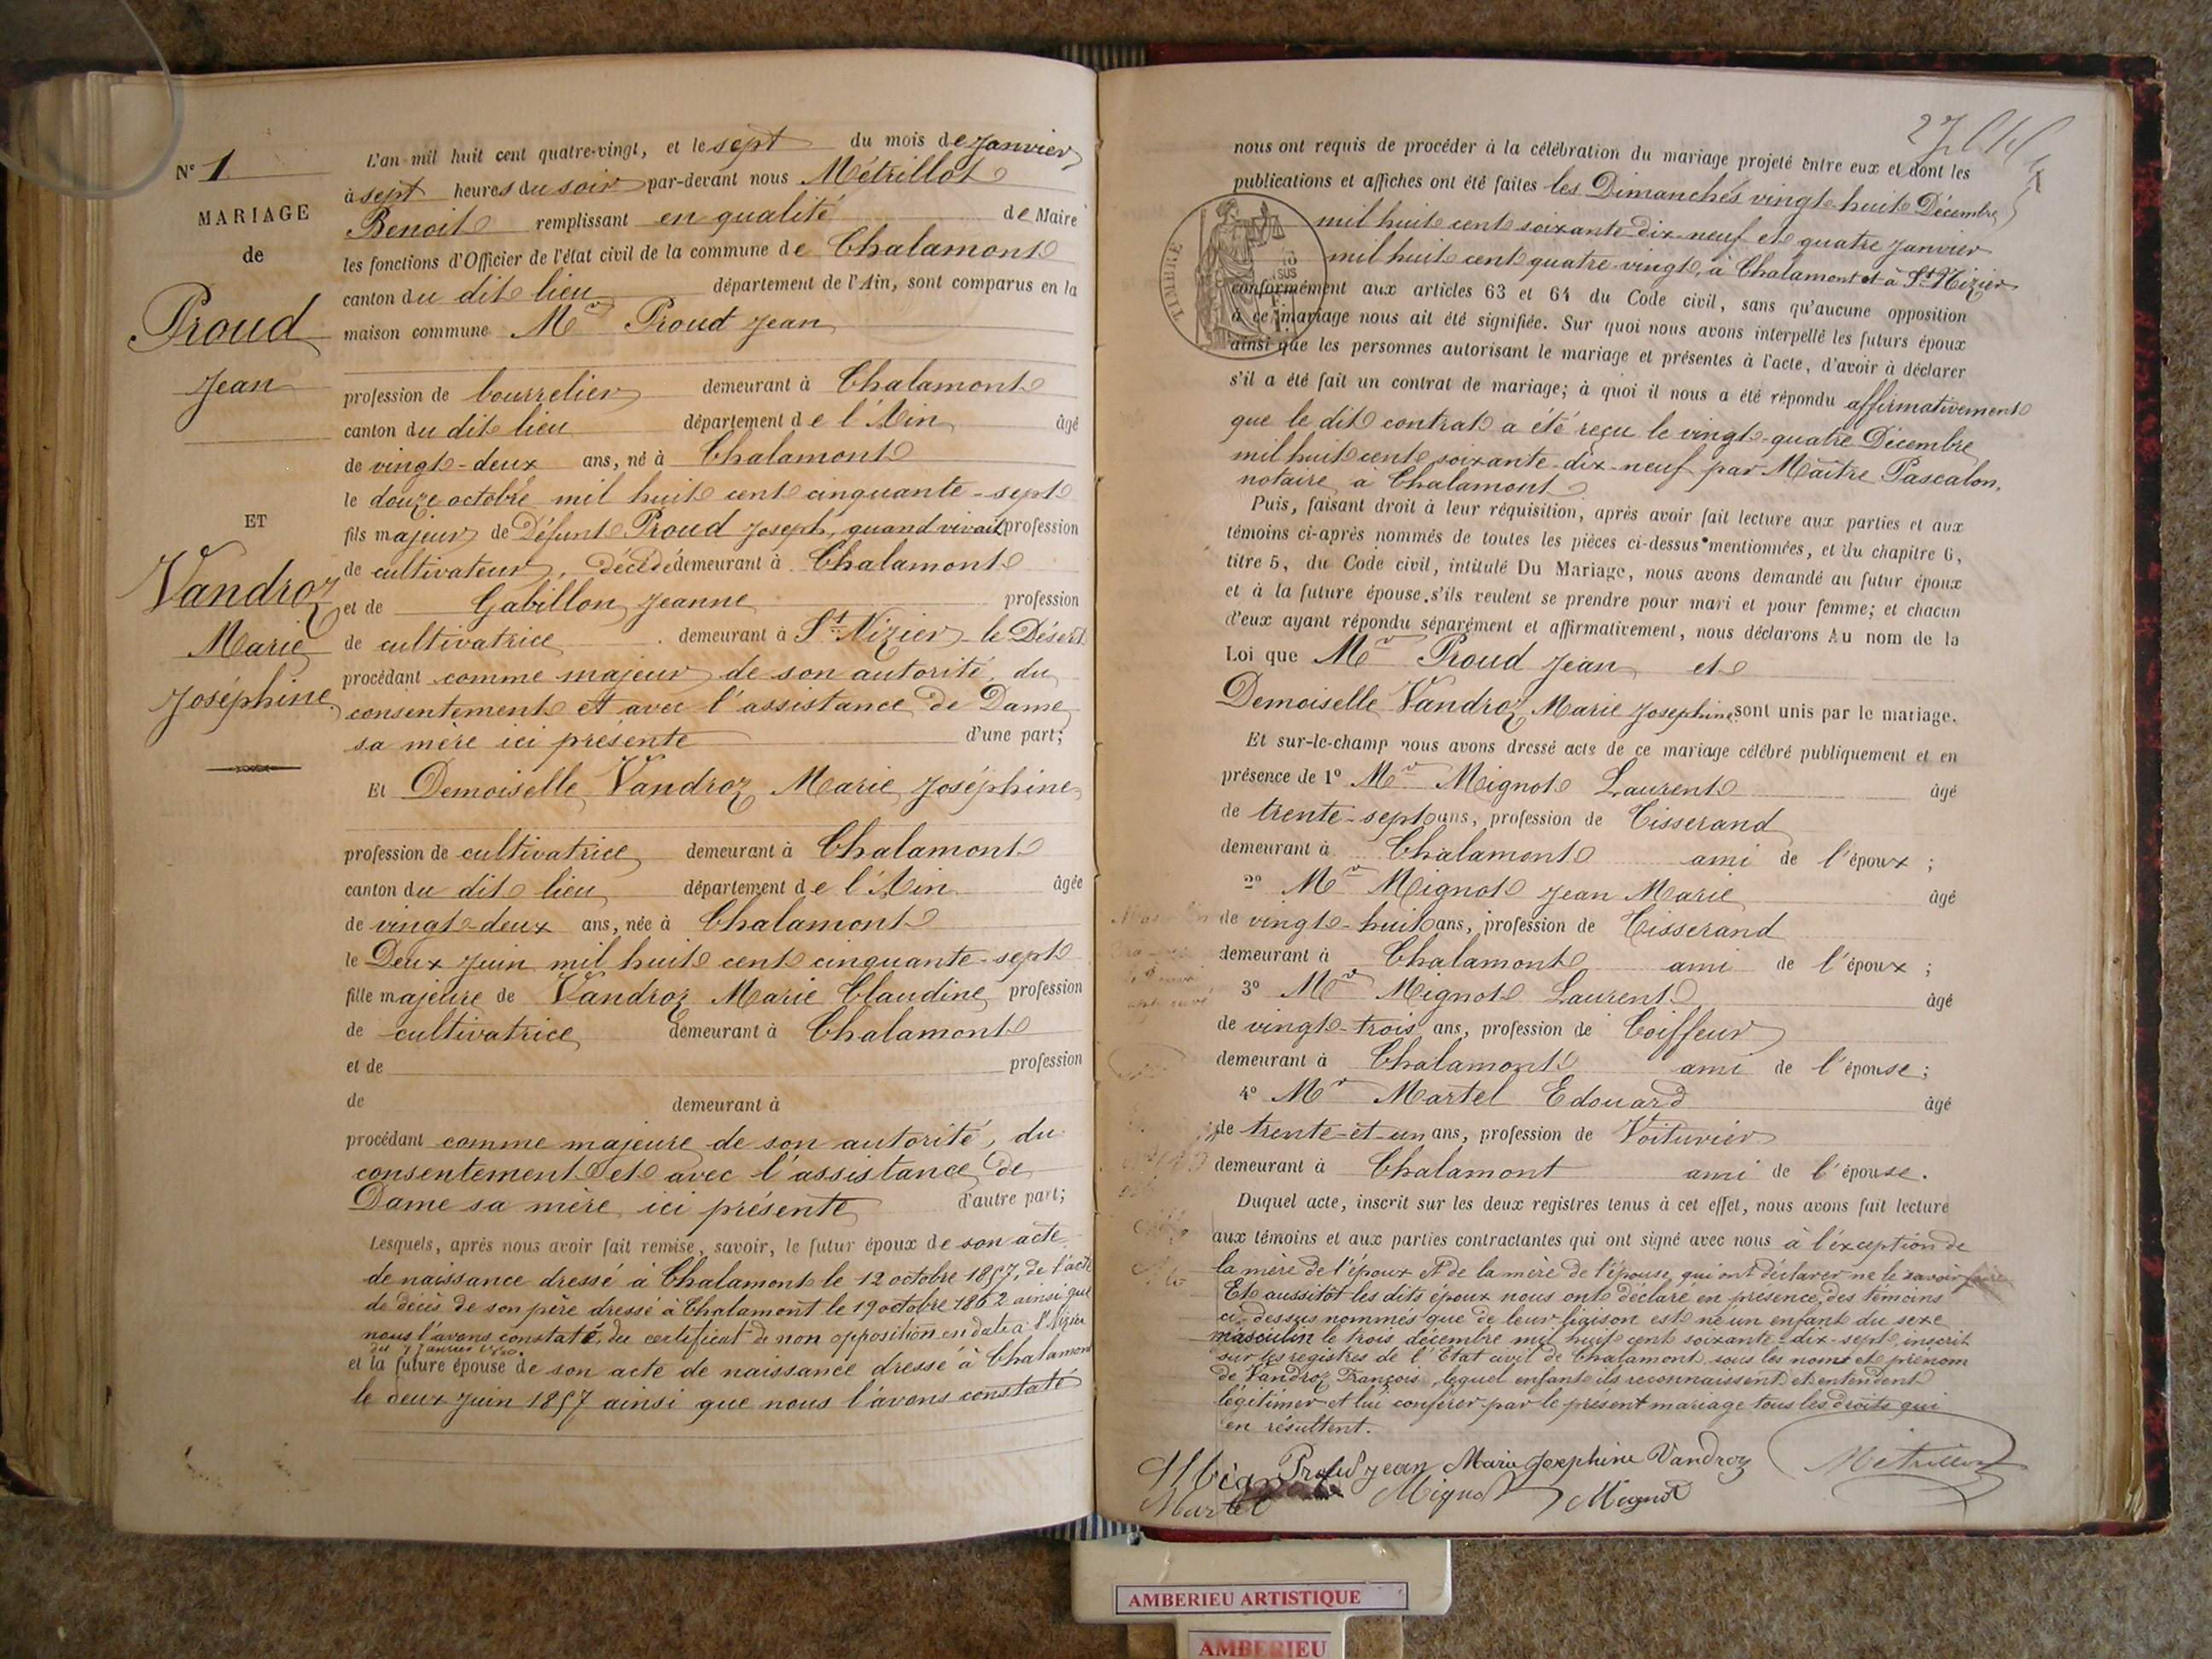 N° 1
MARIAGE
de
Proud
Jean
ET
Vandroz
Marie
Joséphine
L'an mil huit cent quatre-vingt, et le sept du mois de Janvier
à sept heures du soir par-devant nous Métrillot
Benoit remplissant en qualité de Maire
les fonctions d'Officier de l'état civil de la commune de Chalamont
canton du dit lieu département de l'Ain, sont comparus en la
maison commune Mr Proud Jean
profession de bourrelier demeurant à Chalamont
canton du dit lieu département de l'Ain âgé
de vingt-deux ans, né à Chalamont
le douze octobre mil huit cent cinquante-sept
fils majeur de Défunt Proud Joseph, quand vivait profession
de cultivateur, décédé demeurant à Chalamont
et de Gabillon Jeanne profession
de cultivatrice demeurant à St Nizier-le-Désert
procédant comme majeur de son autorité, du
consentement et avec l'assistance de Dame
sa mère ici présente d'une part;
Et Demoiselle Vandroz Marie Joséphine
profession de cultivatrice demeurant à Chalamont
canton du dit lieu département de l'Ain âgée
de vingt-deux ans, née à Chalamont
le Deux Juin mil huit cent cinquante-sept
fille majeure de Vandroz Marie Claudine profession
de cultivatrice demeurant à Chalamont
et de profession
de demeurant à
procédant comme majeure de son autorité, du
consentement et avec l'assistance de
Dame sa mère ici présente d'autre part;
Lesquels, après nous avoir fait remise, savoir, le futur époux de son acte
de naissance dressé à Chalamont le 12 octobre 1857, de l'acte
de décès de son père dressé à Chalamont le 19 octobre 1862 ainsi que
nous l'avons constaté, du certificat de non opposition en date à St Nizier
du 7 Janvier 1880.
et la future épouse de son acte de naissance dressé à Chalamont
le deux Juin 1857 ainsi que nous l'avons constaté
nous ont requis de procéder à la célébration du mariage projeté entre eux et dont les
publications et affiches ont été faites les Dimanches vingt-huit Décembre
mil huit cent soixante-dix-neuf et quatre Janvier
mil huit cent quatre-vingt, à Chalamont et à St Nizier
TIMBRE
SUS
conformément aux articles 63 et 64 du Code civil, sans qu'aucune opposition
à ce mariage nous ait été signifiée. Sur quoi nous avons interpellé les futurs époux
ainsi que les personnes autorisant le mariage et présentes à l'acte, d'avoir à déclarer
s'il a été fait un contrat de mariage; à quoi il nous a été répondu affirmativement
que le dit contrat a été reçu le vingt-quatre Décembre
mil huit cent soixante-dix-neuf par Maître Pascalon,
notaire à Chalamont
Puis, faisant droit à leur réquisition, après avoir fait lecture aux parties et aux
témoins ci-après nommés de toutes les pièces ci-dessus mentionnées, et du chapitre 6,
titre 5, du Code civil, intitulé Du Mariage, nous avons demandé au futur époux
et à la future épouse s'ils veulent se prendre pour mari et pour femme; et chacun
d'eux ayant répondu séparément et affirmativement, nous déclarons Au nom de la
Loi que Mr Proud Jean et
Demoiselle Vandroz Marie Joséphine sont unis par le mariage.
Et sur-le-champ nous avons dressé acte de ce mariage célébré publiquement et en
présence de 1° Mr Mignot Laurent âgé
de trente-sept ans, profession de Tisserand
demeurant à Chalamont ami de l'époux;
2° Mr Mignot Jean Marie âgé
de vingt-huit ans, profession de Tisserand
demeurant à Chalamont ami de l'époux;
3° Mr Mignot Laurent âgé
de vingt-trois ans, profession de Coiffeur
demeurant à Chalamont ami de l'épouse;
4° Mr Martel Edouard âgé
de trente-et-un ans, profession de Voiturier
demeurant à Chalamont ami de l'épouse.
Duquel acte, inscrit sur les deux registres tenus à cet effet, nous avons fait lecture
aux témoins et aux parties contractantes qui ont signé avec nous à l'exception de
la mère de l'époux et de la mère de l'épouse qui ont déclarer ne le savoir faire
Et aussitôt les dits époux nous ont déclaré en présence des témoins
ci-dessus nommés que de leur liaison est né un enfant du sexe
masculin le trois décembre mil huit cent soixante-dix-sept, inscrit
sur les registres de l'Etat civil de Chalamont sous les noms et prénom
de Vandroz François, lequel enfant ils reconnaissent et entendent
légitimer et lui conférer par le présent mariage tous les droits qui
en résultent.
Proud Jean Marie Josephine Vandroz Métrillot
Mignot Mignot Mignot
Martel
AMBERIEU ARTISTIQUE
AMBERIEU